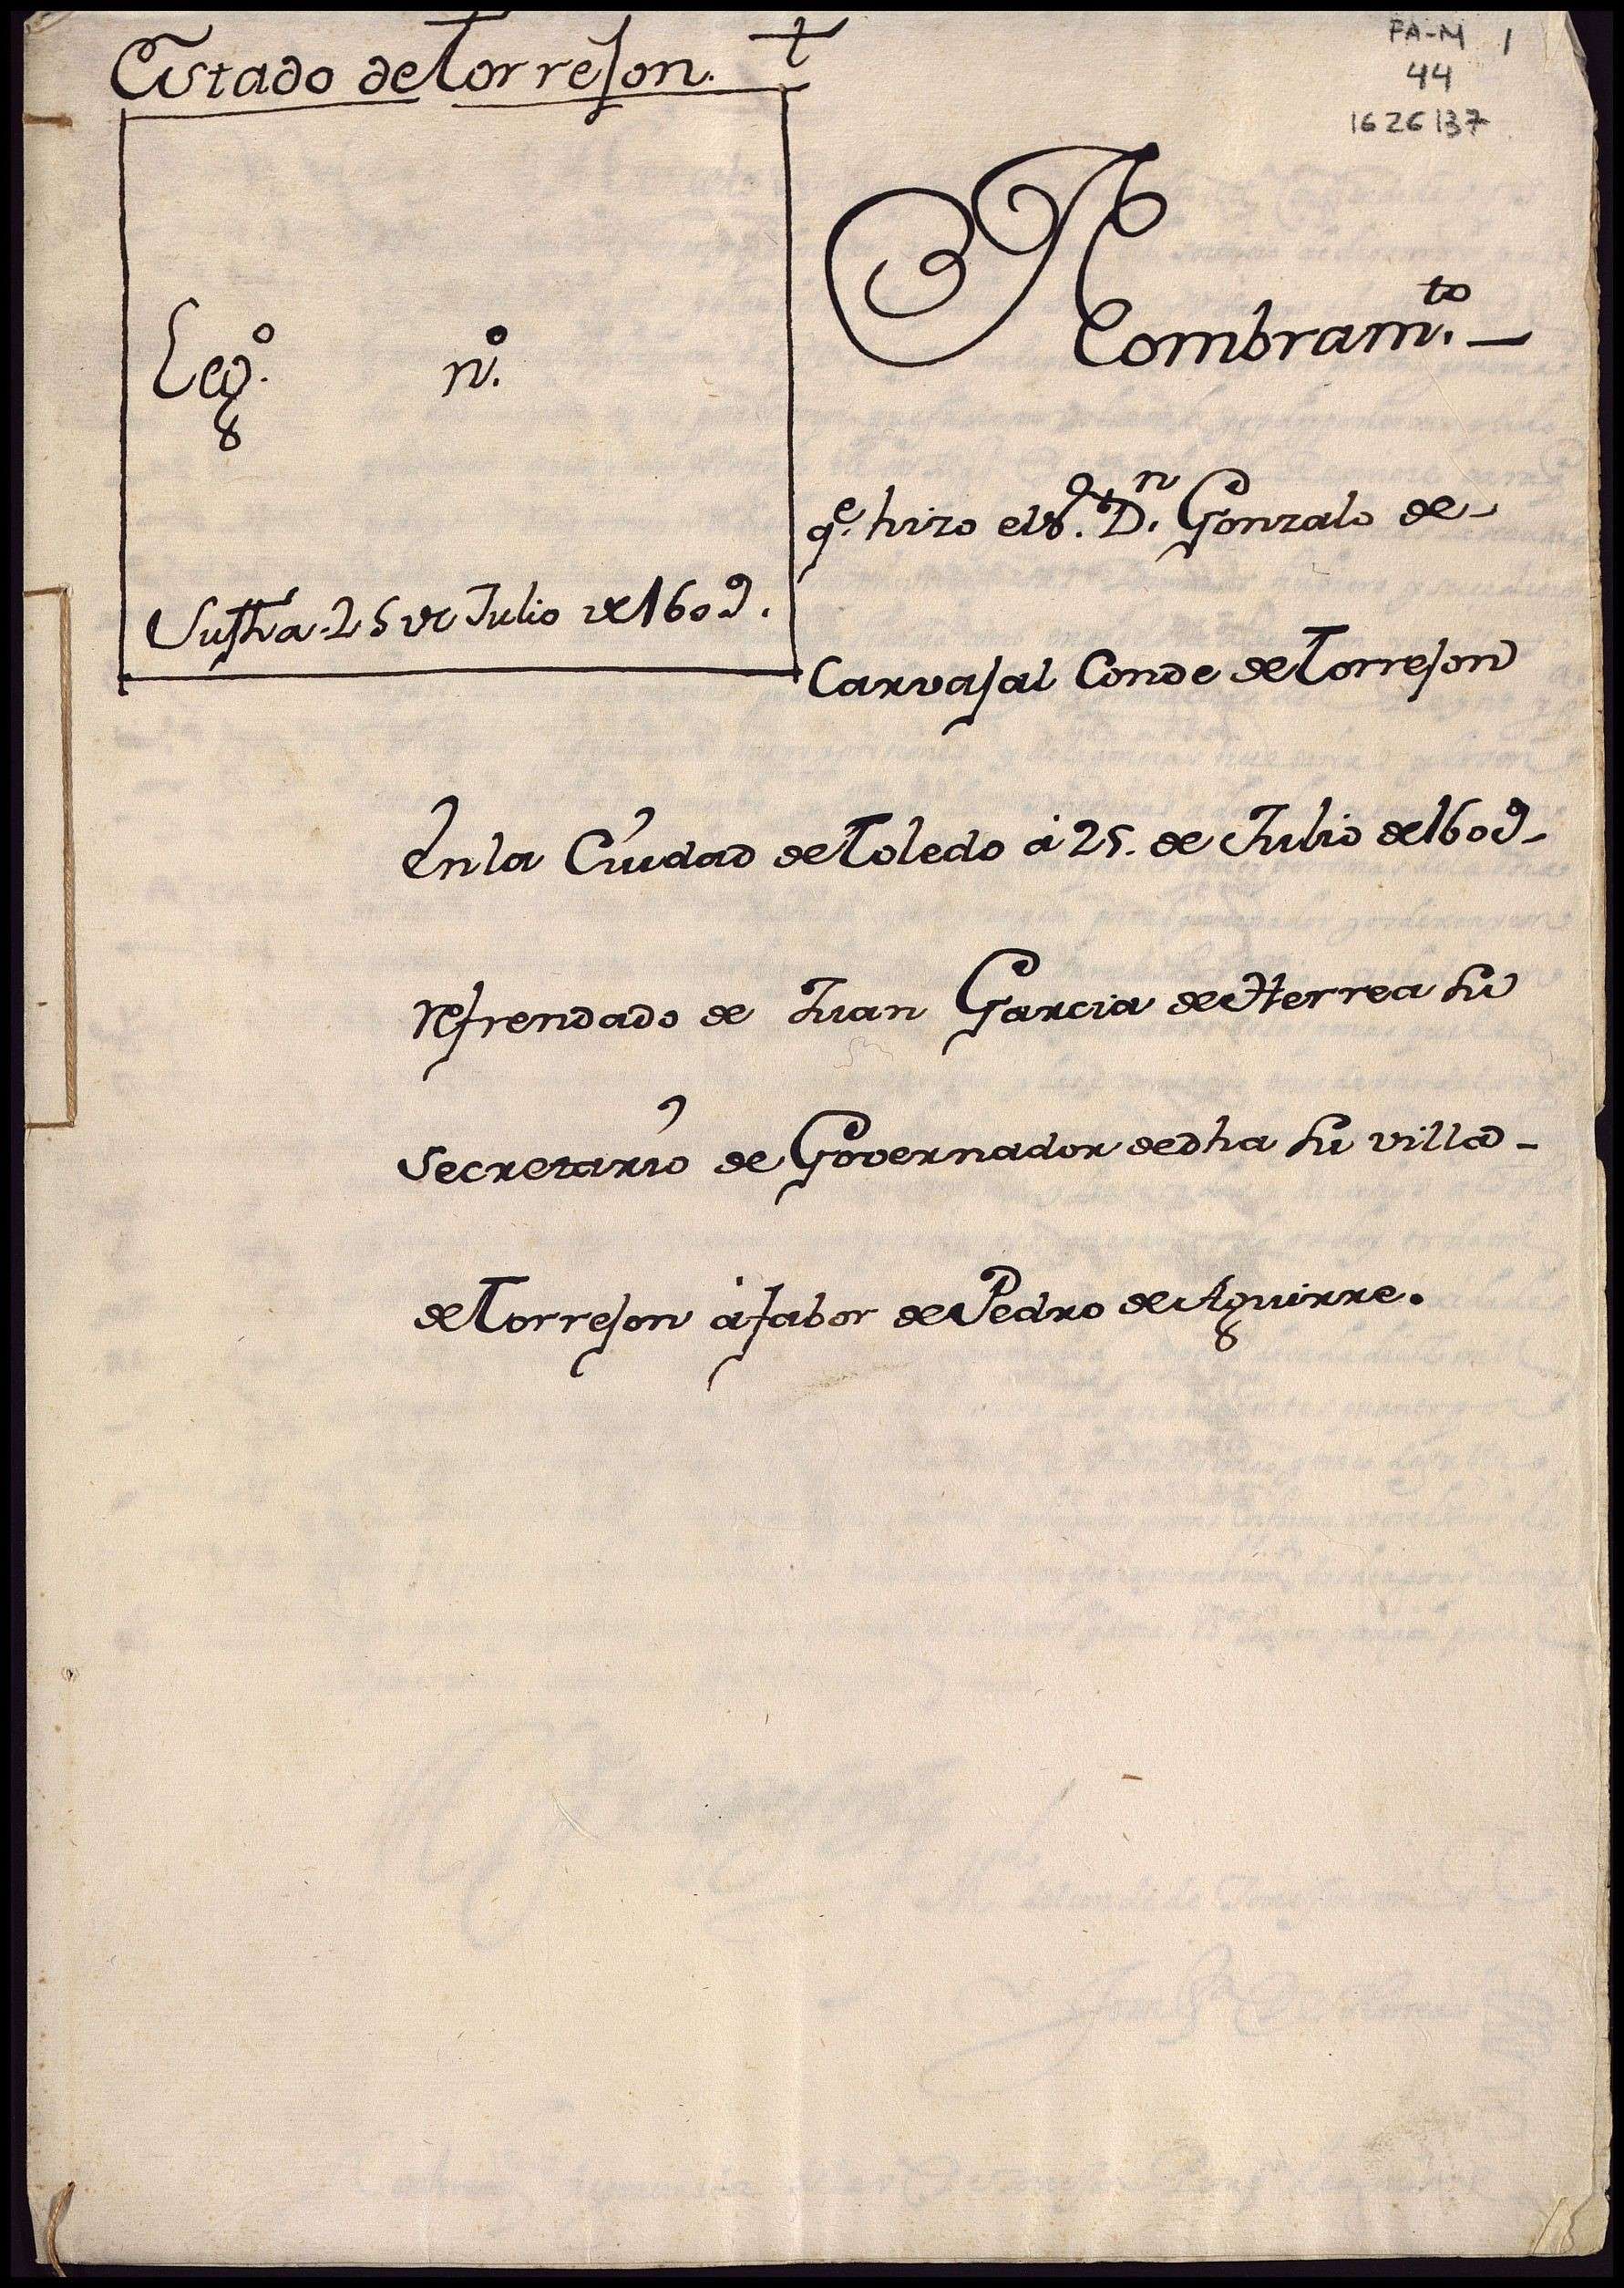 Estado de Torrejon. †
PA-M 1
44
1626137
Nombram.to
Leg.º n.º
q.e hizo el S.r D.n Gonzalo de
Su fha 25 de Julio de 1609.
Carvajal Conde de Torrejon
en la Ciudad de Toledo à 25. de Julio de 1609
refrendado de Juan Garcia de Herrea su
Secretario de Governador de dha su villa
de Torrejon à fabor de Pedro de Aguirre.